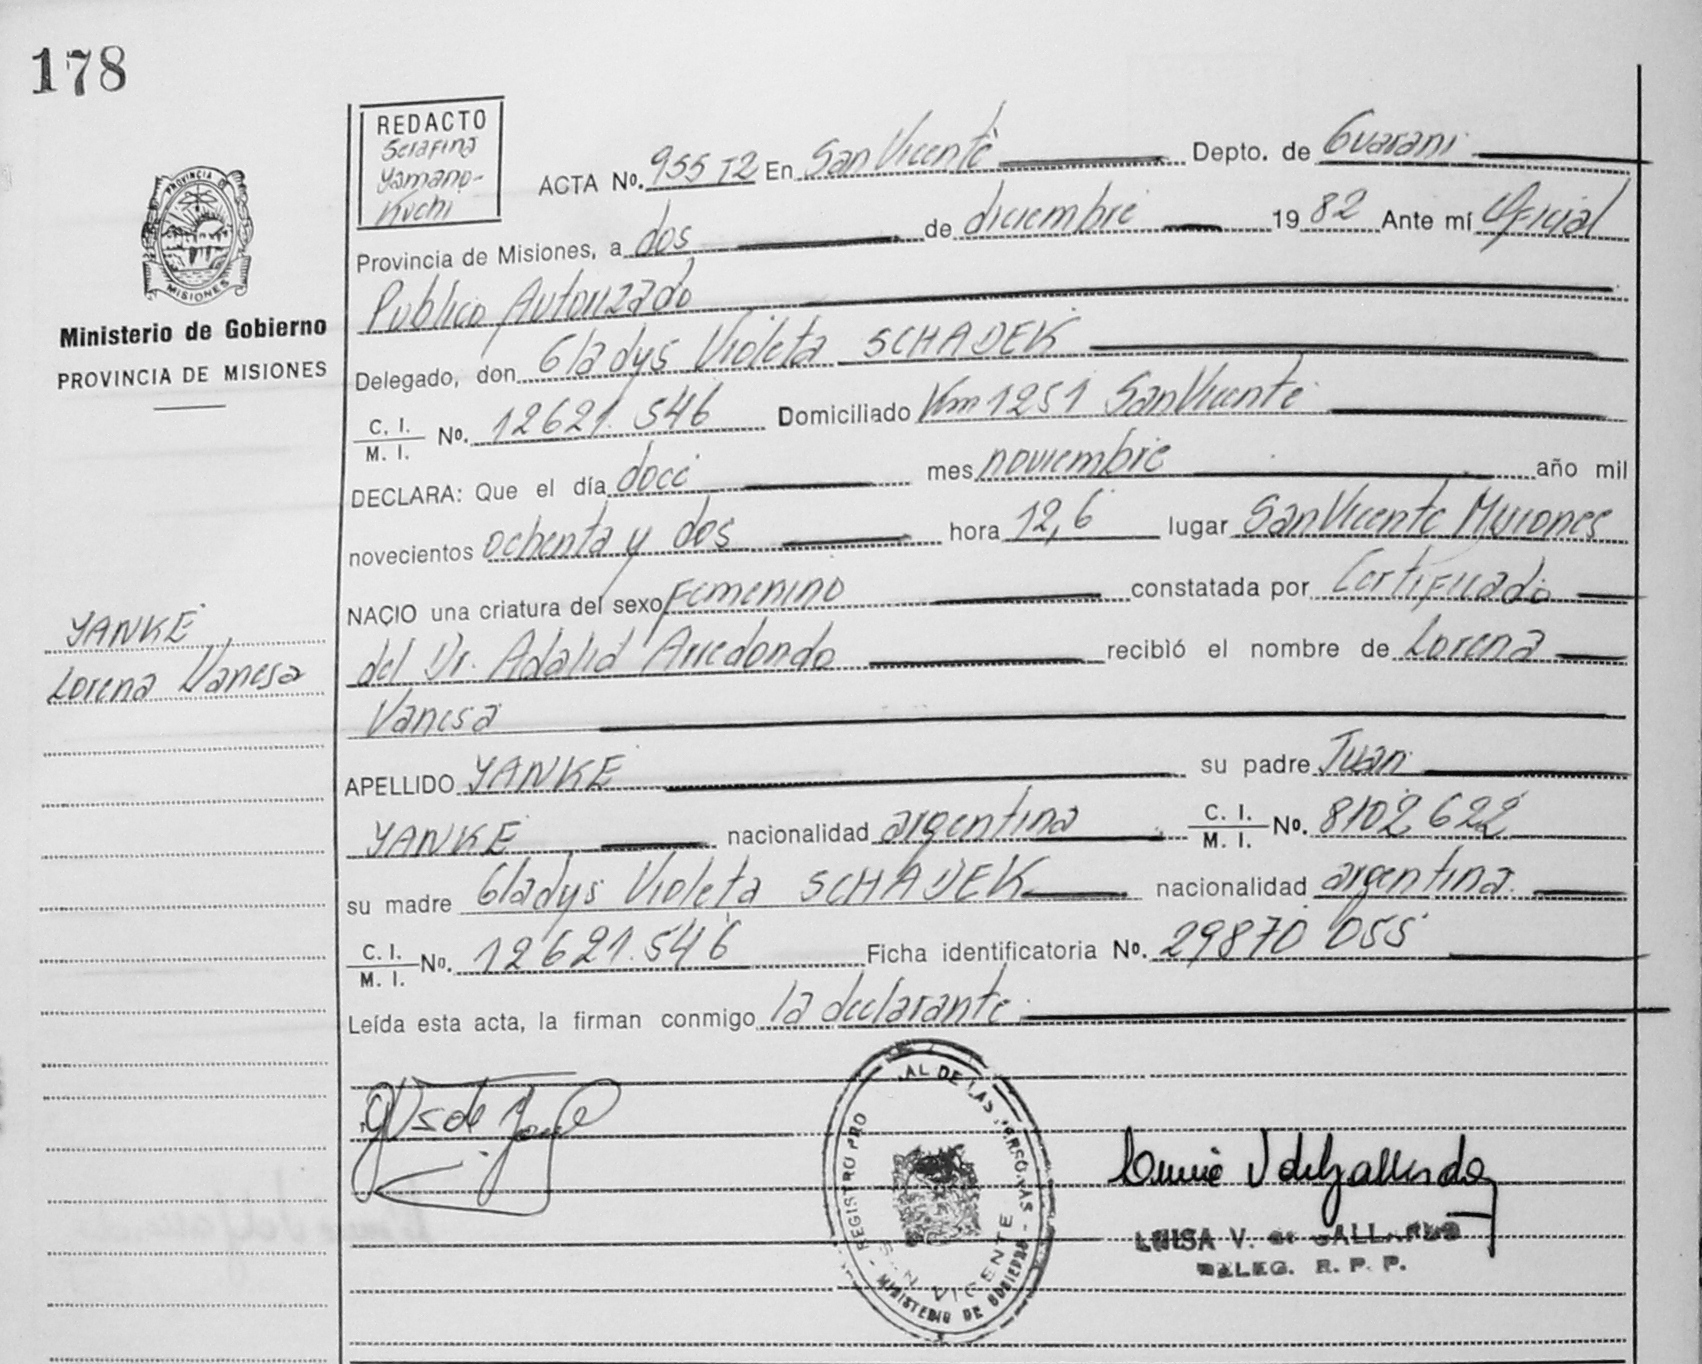 178
REDACTO
Serafina
Yamano-
Kuchi
ACTA No. 955 T2 En San Vicente Depto. de Guarani
Provincia de Misiones, a dos de diciembre 1982 Ante mí Oficial
Publico Autorizado
Delegado, don Gladys Violeta SCHADEK
C. I.
M. I. No. 12621.546 Domiciliado Km 1251 San Vicente
DECLARA: Que el día doce mes noviembre año mil
novecientos ochenta y dos hora 12,6 lugar San Vicente Misiones
NACIO una criatura del sexo Femenino constatada por Certificado
del Dr. Adalid Arredondo recibió el nombre de Lorena
Vanesa
APELLIDO YANKE su padre Juan
YANKE nacionalidad argentina C. I.
M. I. No. 8102622
su madre Gladys Violeta SCHADEK nacionalidad argentina
C. I.
M. I. No. 12621.546 Ficha identificatoria No. 29870 055
Leída esta acta, la firman conmigo la declarante
PROVINCIA DE
MISIONES
Ministerio de Gobierno
PROVINCIA DE MISIONES
YANKE
Lorena Vanesa
REGISTRO PRO AL DE LAS PERSONAS
SAN VICENTE
MINISTERIO DE GOBIERNO
LUISA V. de GALLARDO
DELEG. R. P. P.